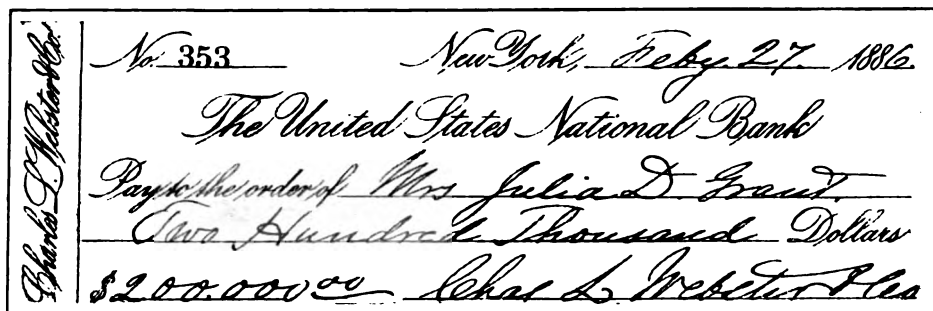 Charles L. Webster & Co.
No. 353 New York, Feby 27. 1886.
The United States National Bank
Pay to the order of Mrs Julia D Grant.
Two Hundred Thousand Dollars
$200.000 00 Chas L Webster & Co